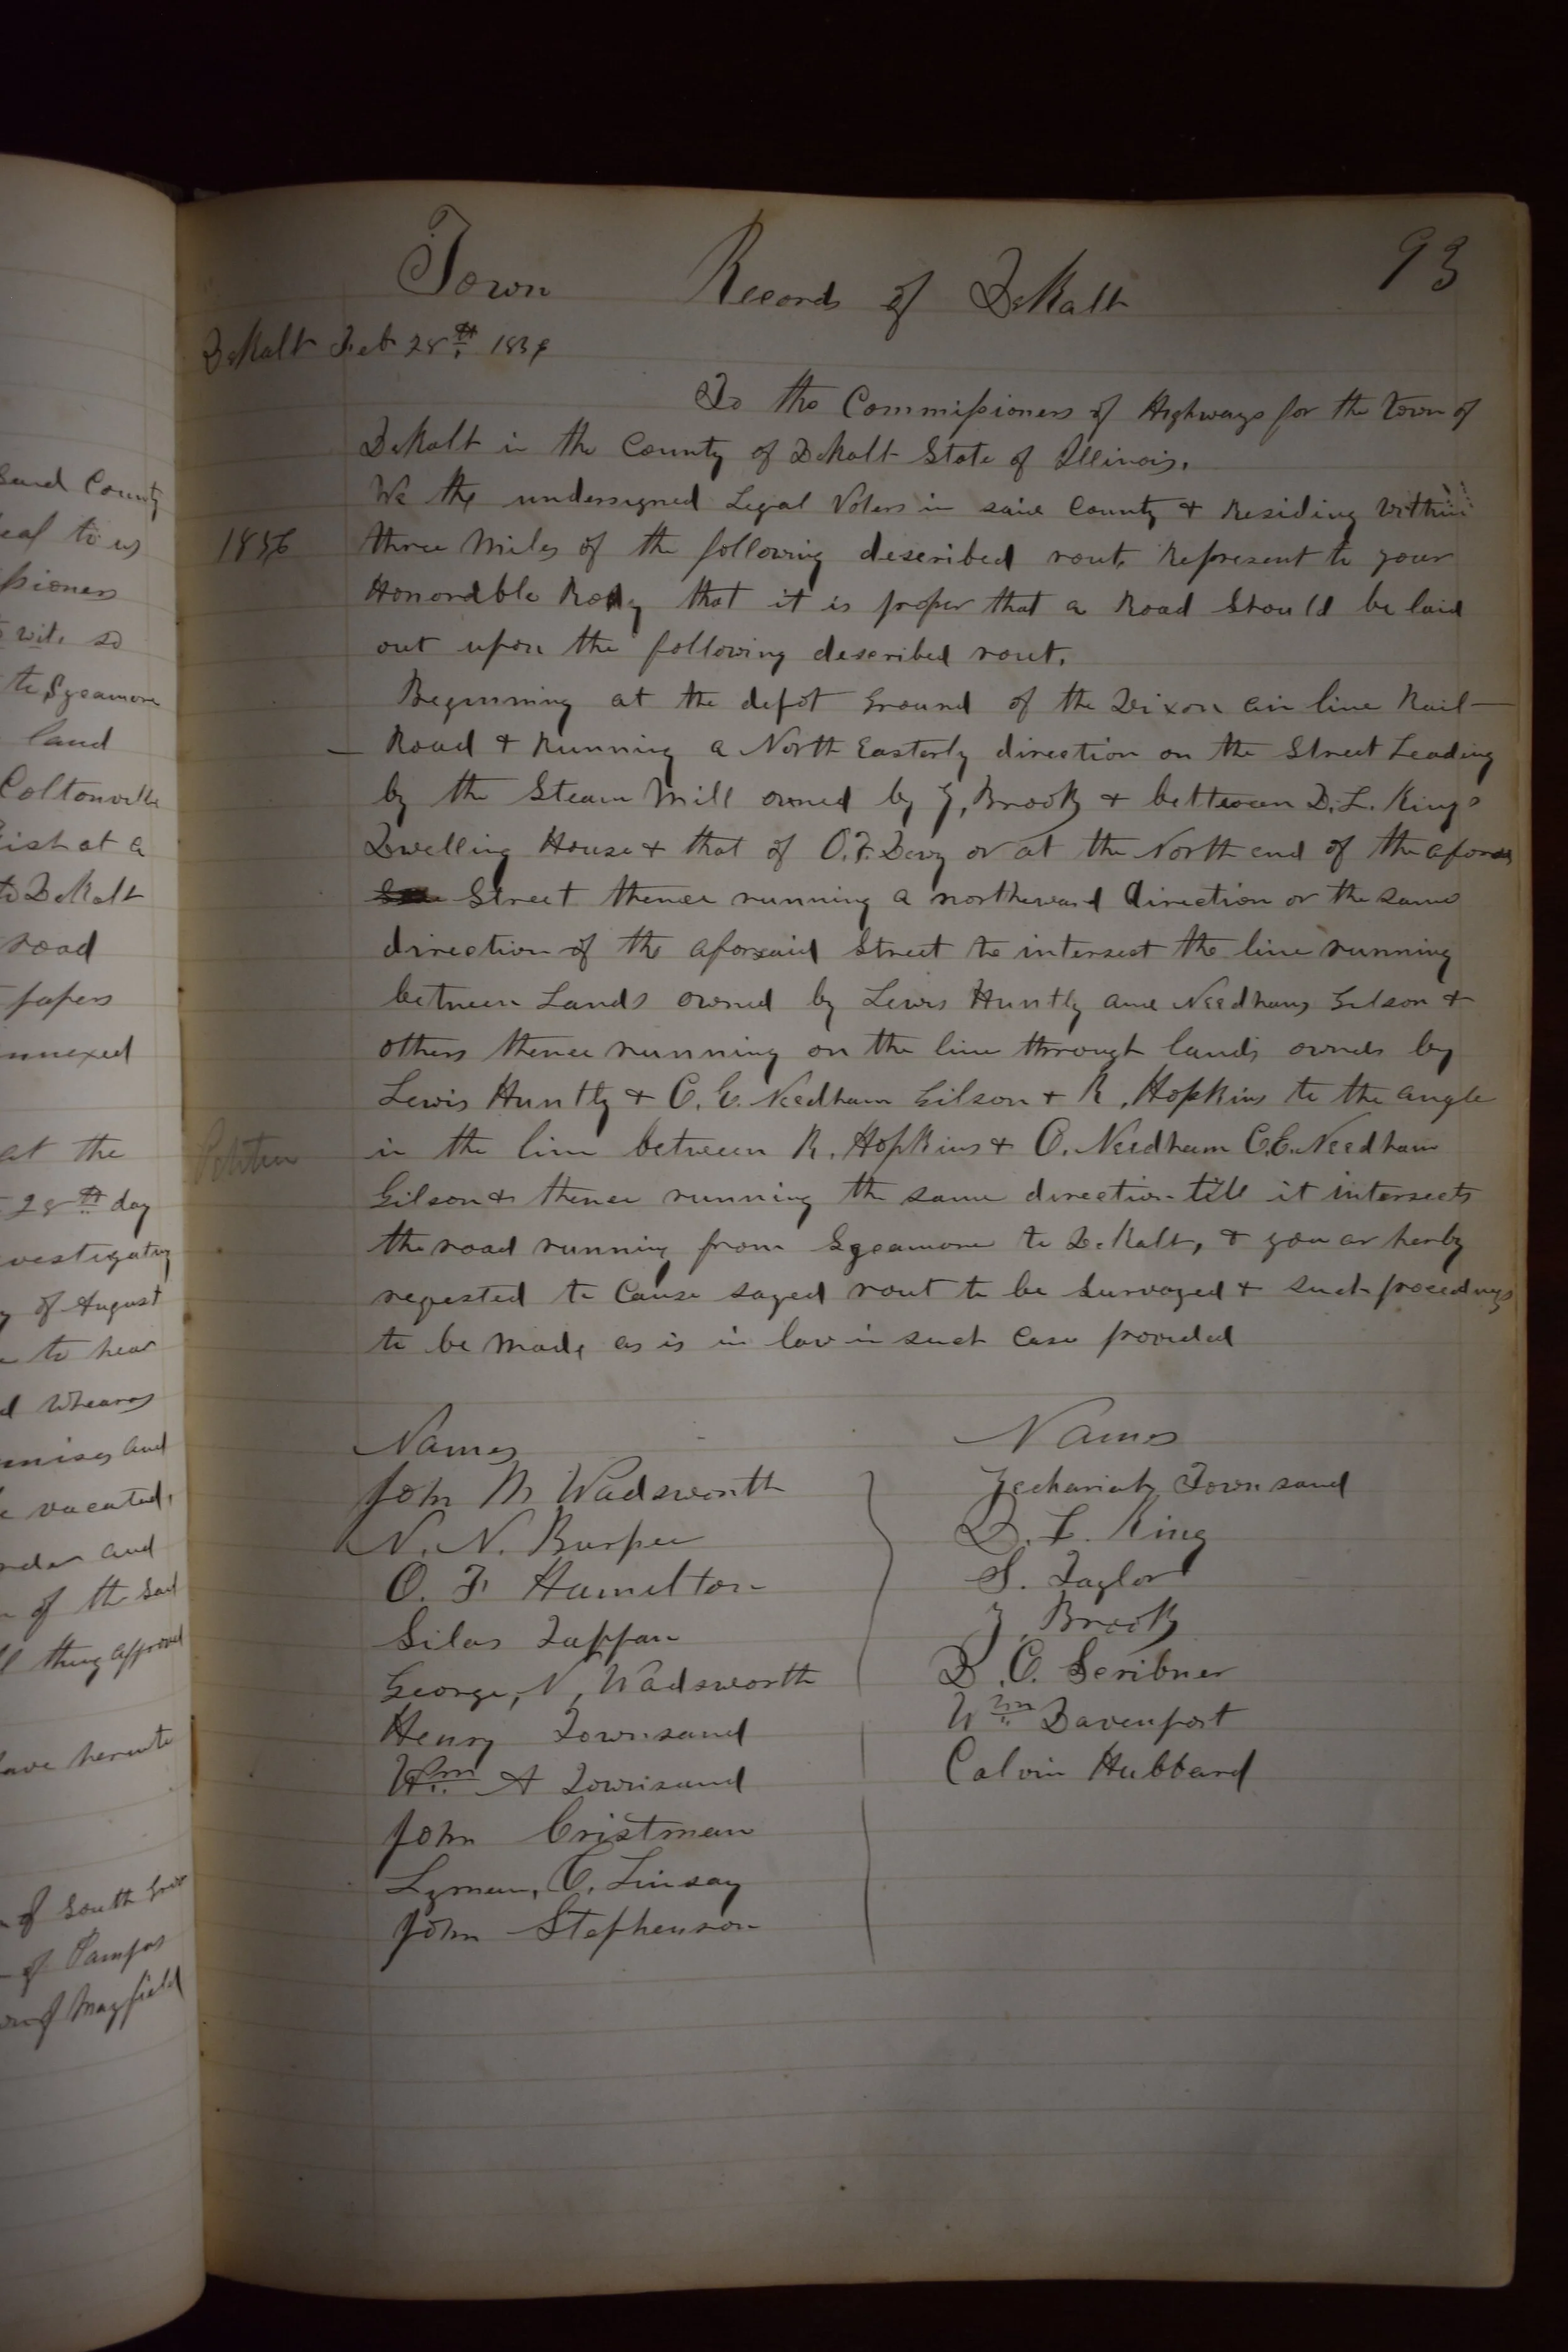 Sand County
eal to us
ssioners
wit. so
to Sycamore
land
Coltonville
ish at a
to DeKalb
road
papers
annexed
at the
28th day
vestigating
of August
to hear
d Whearas
mises and
vacated,
order and
of the said
thing approved
have herunto
of South Grove
of Pampas
of Mayfield
Town Records of DeKalb 93
DeKalb Feb 28th
To the Commissioners of Highways for the Town of
DeKalb in the County of DeKalb State of Illinois.
We the undersigned Legal Voters in said County & Residing within
1856 three Miles of the following described rout. Represent to your
Honorable Body that it is proper that a Road Should be laid
out upon the following described rout.
Beginning at the depot Ground of the Dixon air line Rail-
- Road & Running a North Easterly direction on the Street Leading
by the Steam Mill owned by Z. Brook & between D. L. Kings
Dwelling House & that of O. F. or at the North end of the afore
Street thence running a northward direction or the same
direction of the aforsaid Street to intersect the line running
between Lands owned by Lewis Huntly and Needham Gilson &
others thence running on the line through lands ownds by
Lewis Huntly & C. E. Needham Gilson & R. Hopkins to the angle
Petition in the line between R. Hopkins & O. Needham C.E. Needham
Gilson & thence running the same direction till it intersects
the road running from Sycamore to DeKalb, & you ar herby
reqested to Cause sayed rout to be Survayed & such procedings
to be Made as is in law in such case provided
Names Names
John M Wadsworth Zechariah Townsand
N. N. Burpee D. L. King
O. F. Hamilton S. Taylor
Silas Tappan Z. Brook
George, N, Wadsworth D. C. Scribner
Henry Townsand Wm Davenport
Wm A Townsand Calvin Hubbard
John Cristman
Lyman, C. Linsay
John Stephenson